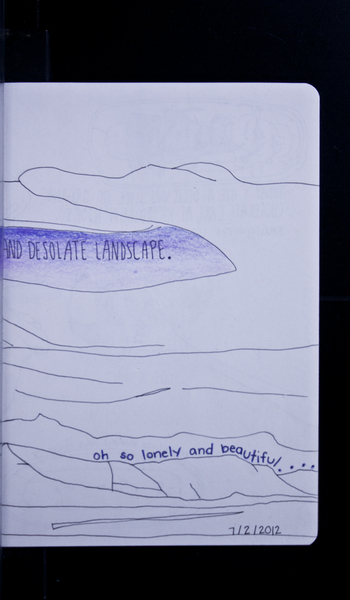 AND DESOLATE LANDSCAPE.
oh so lonely and beautiful....
7/2/2012